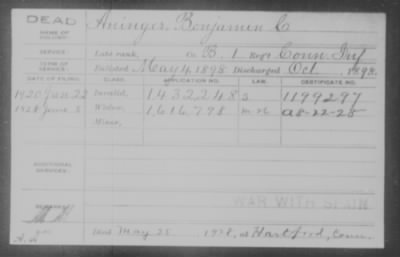 DEAD
NAME OF SOLDIER: Aringer, Benjamin C
SERVICE: Late rank, Co. B, 1 Reg't Conn. Inf
TERM OF SERVICE: Enlisted May 4, 1898 Discharged Oct 1898
DATE OF FILING. CLASS. APPLICATION NO. LAW. CERTIFICATE NO.
1920 Jan 22 Invalid, 1,432,248 S 1199297
1928 June 5 Widow, 1,616,798 a8-22-28
Minor,
ADDITIONAL SERVICES:
WAR WITH SPAIN
REMARKS:
Died May 25 1928, at Hartford, Conn.